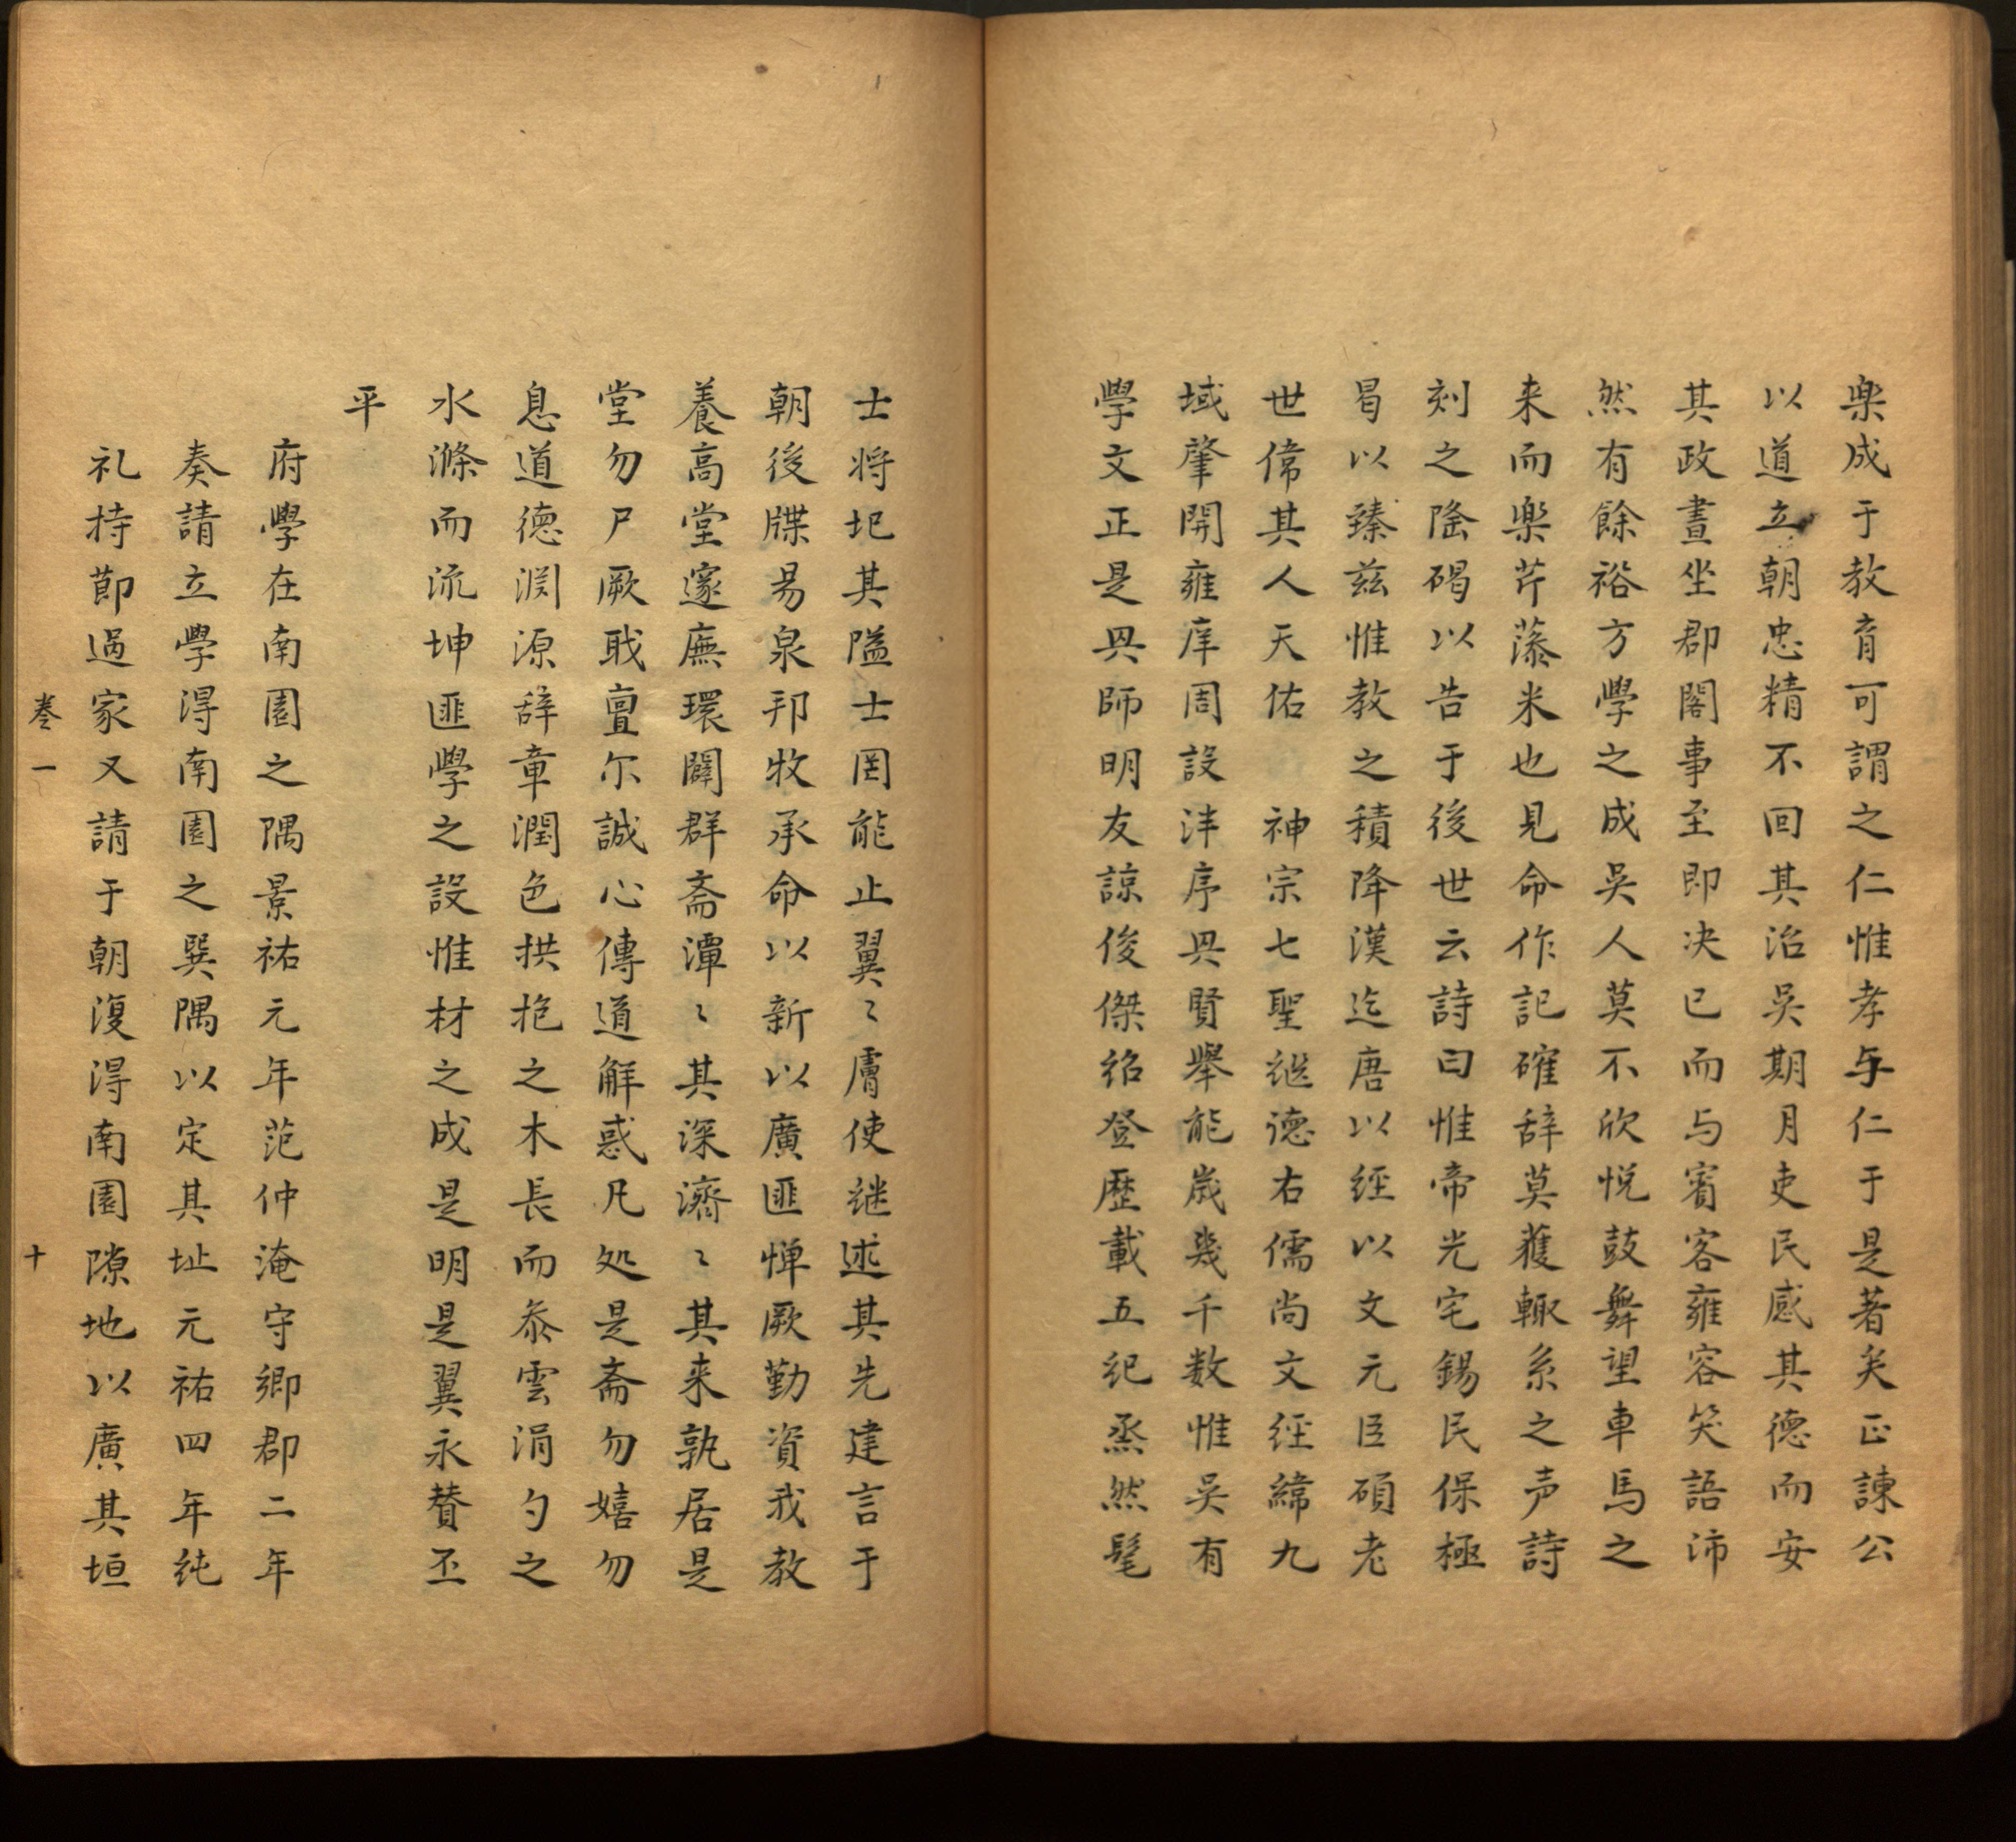 楽成于教育可謂之仁惟孝与仁于是著矣正諫公
以道立朝忠精不回其治吳期月吏民感其德而安
其政晝坐郡閣事至即决已而与賓客雍容笑語沛
然有餘裕方學之成吳人莫不欣悅鼓舞望車馬之
来而楽芹藻米也見命作記確辞莫獲輙系之声詩
刻之隂碣以告于後世云詩曰惟帝光宅錫民保極
曷以臻兹惟教之積降漢迄唐以經以文元臣碩老
世偉其人天佑　神宗七聖継德右儒尚文經緯九
域肇開雍庠周設泮序與賢舉能歲幾千数惟吳有
學文正是與師明友諒俊傑紹登歷載五紀烝然髦
士将圯其隘士罔能止翼〻膚使継述其先建言于
朝後牒易泉邦牧承命以新以廣匪惮厥勤資我教
養高堂邃廡環闢群斋潭〻其深濟〻其来孰居是
堂勿尸厥戢亶尔誠心傳道解惑凡処是斋勿嬉勿
息道德渕源辞章潤色拱抱之木長而叅雲涓勺之
水滌而流坤匪學之設惟材之成是明是翼永賛丕
平
府學在南園之隅景祐元年范仲淹守郷郡二年
奏請立學淂南園之巽隅以定其址元祐四年純
礼持節過家又請于朝復淂南園隙地以廣其垣
卷一　十